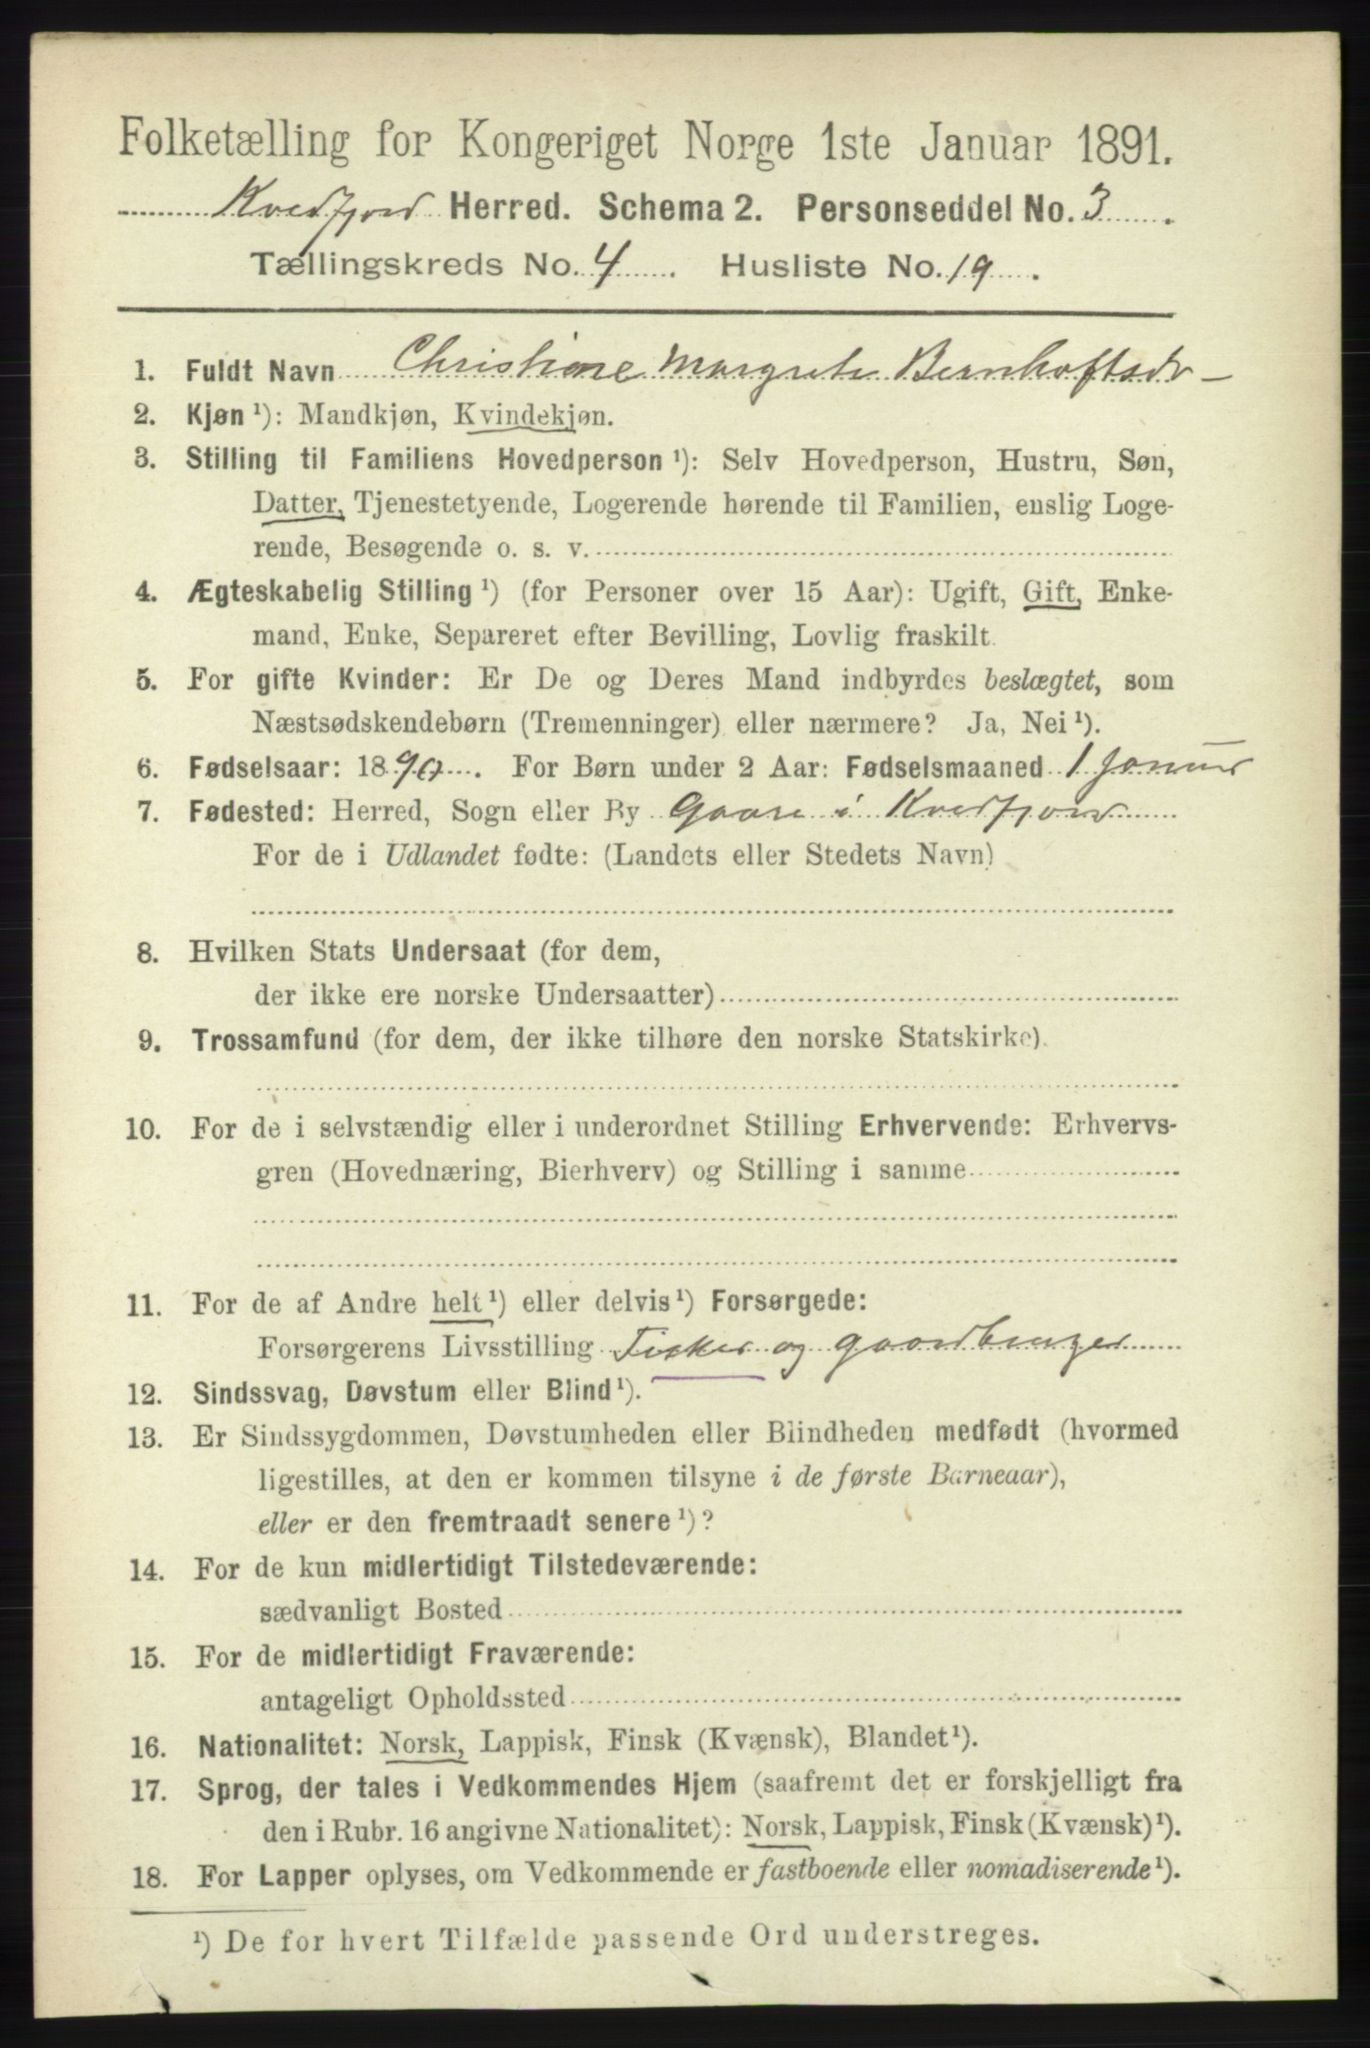 Folketælling for Kongeriget Norge 1ste Januar 1891.
Kvedfjord Herred. Schema 2. Personseddel No. 3.
Tællingskreds No. 4. Husliste No. 19.
1. Fuldt Navn Christiane Margrete Bernhoftsdr
2. Kjøn ¹): Mandkjøn, Kvindekjøn.
3. Stilling til Familiens Hovedperson ¹): Selv Hovedperson, Hustru, Søn,
Datter, Tjenestetyende, Logerende hørende til Familien, enslig Loge-
rende, Besøgende o. s. v.
4. Ægteskabelig Stilling ¹) (for Personer over 15 Aar): Ugift, Gift, Enke-
mand, Enke, Separeret efter Bevilling, Lovlig fraskilt.
5. For gifte Kvinder: Er De og Deres Mand indbyrdes beslægtet, som
Næstsødskendebørn (Tremenninger) eller nærmere? Ja, Nei ¹).
6. Fødselsaar: 1890. For Børn under 2 Aar: Fødselsmaaned 1 Januar
7. Fødested: Herred, Sogn eller By Gaare i Kvedfjord
For de i Udlandet fødte: (Landets eller Stedets Navn)
8. Hvilken Stats Undersaat (for dem,
der ikke ere norske Undersaatter)
9. Trossamfund (for dem, der ikke tilhøre den norske Statskirke).
10. For de i selvstændig eller i underordnet Stilling Erhvervende: Erhvervs-
gren (Hovednæring, Bierhverv) og Stilling i samme
11. For de af Andre helt ¹) eller delvis ¹) Forsørgede:
Forsørgerens Livsstilling Fisker og gaardbruger
12. Sindssvag, Døvstum eller Blind ¹).
13. Er Sindssygdommen, Døvstumheden eller Blindheden medfødt (hvormed
ligestilles, at den er kommen tilsyne i de første Barneaar),
eller er den fremtraadt senere ¹)?
14. For de kun midlertidigt Tilstedeværende:
sædvanligt Bosted
15. For de midlertidigt Fraværende:
antageligt Opholdssted
16. Nationalitet: Norsk, Lappisk, Finsk (Kvænsk), Blandet ¹).
17. Sprog, der tales i Vedkommendes Hjem (saafremt det er forskjelligt fra
den i Rubr. 16 angivne Nationalitet): Norsk, Lappisk, Finsk (Kvænsk) ¹).
18. For Lapper oplyses, om Vedkommende er fastboende eller nomadiserende ¹).
¹) De for hvert Tilfælde passende Ord understreges.